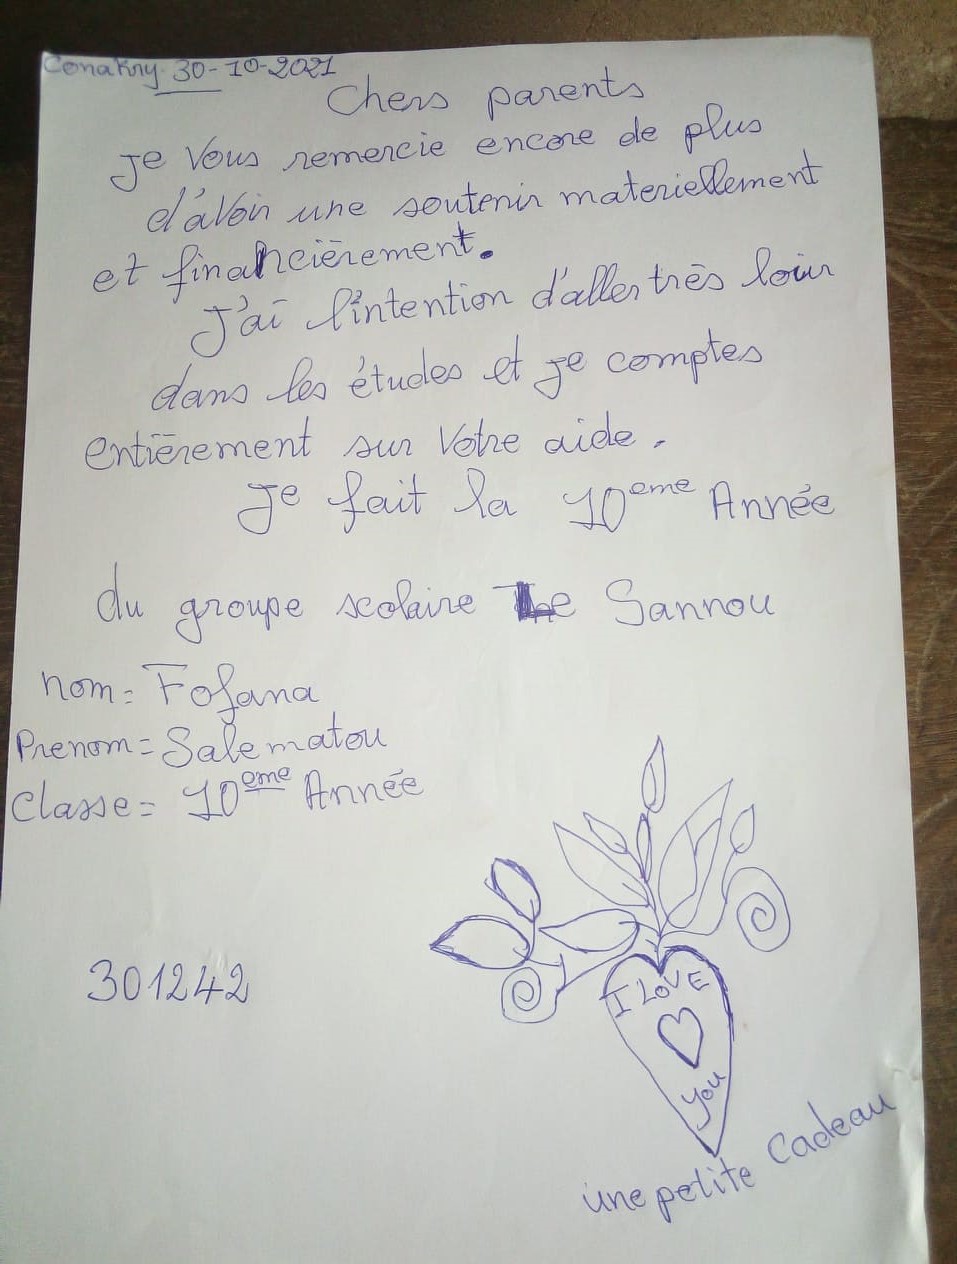 Conakry 30-10-2021
Chers parents
Je Vous remercie encore de plus
d'avoir une soutenir materiellement
et financièrement.
J'ai l'intention d'aller très loin
dans les études et je comptes
entièrement sur Votre aide.
Je fait la 10eme Année
du groupe scolaire Le Sannou
nom= Fofana
Prenom= Salematou
Classe= 10eme Année
301242
I LOVE
you
une petite Cadeau